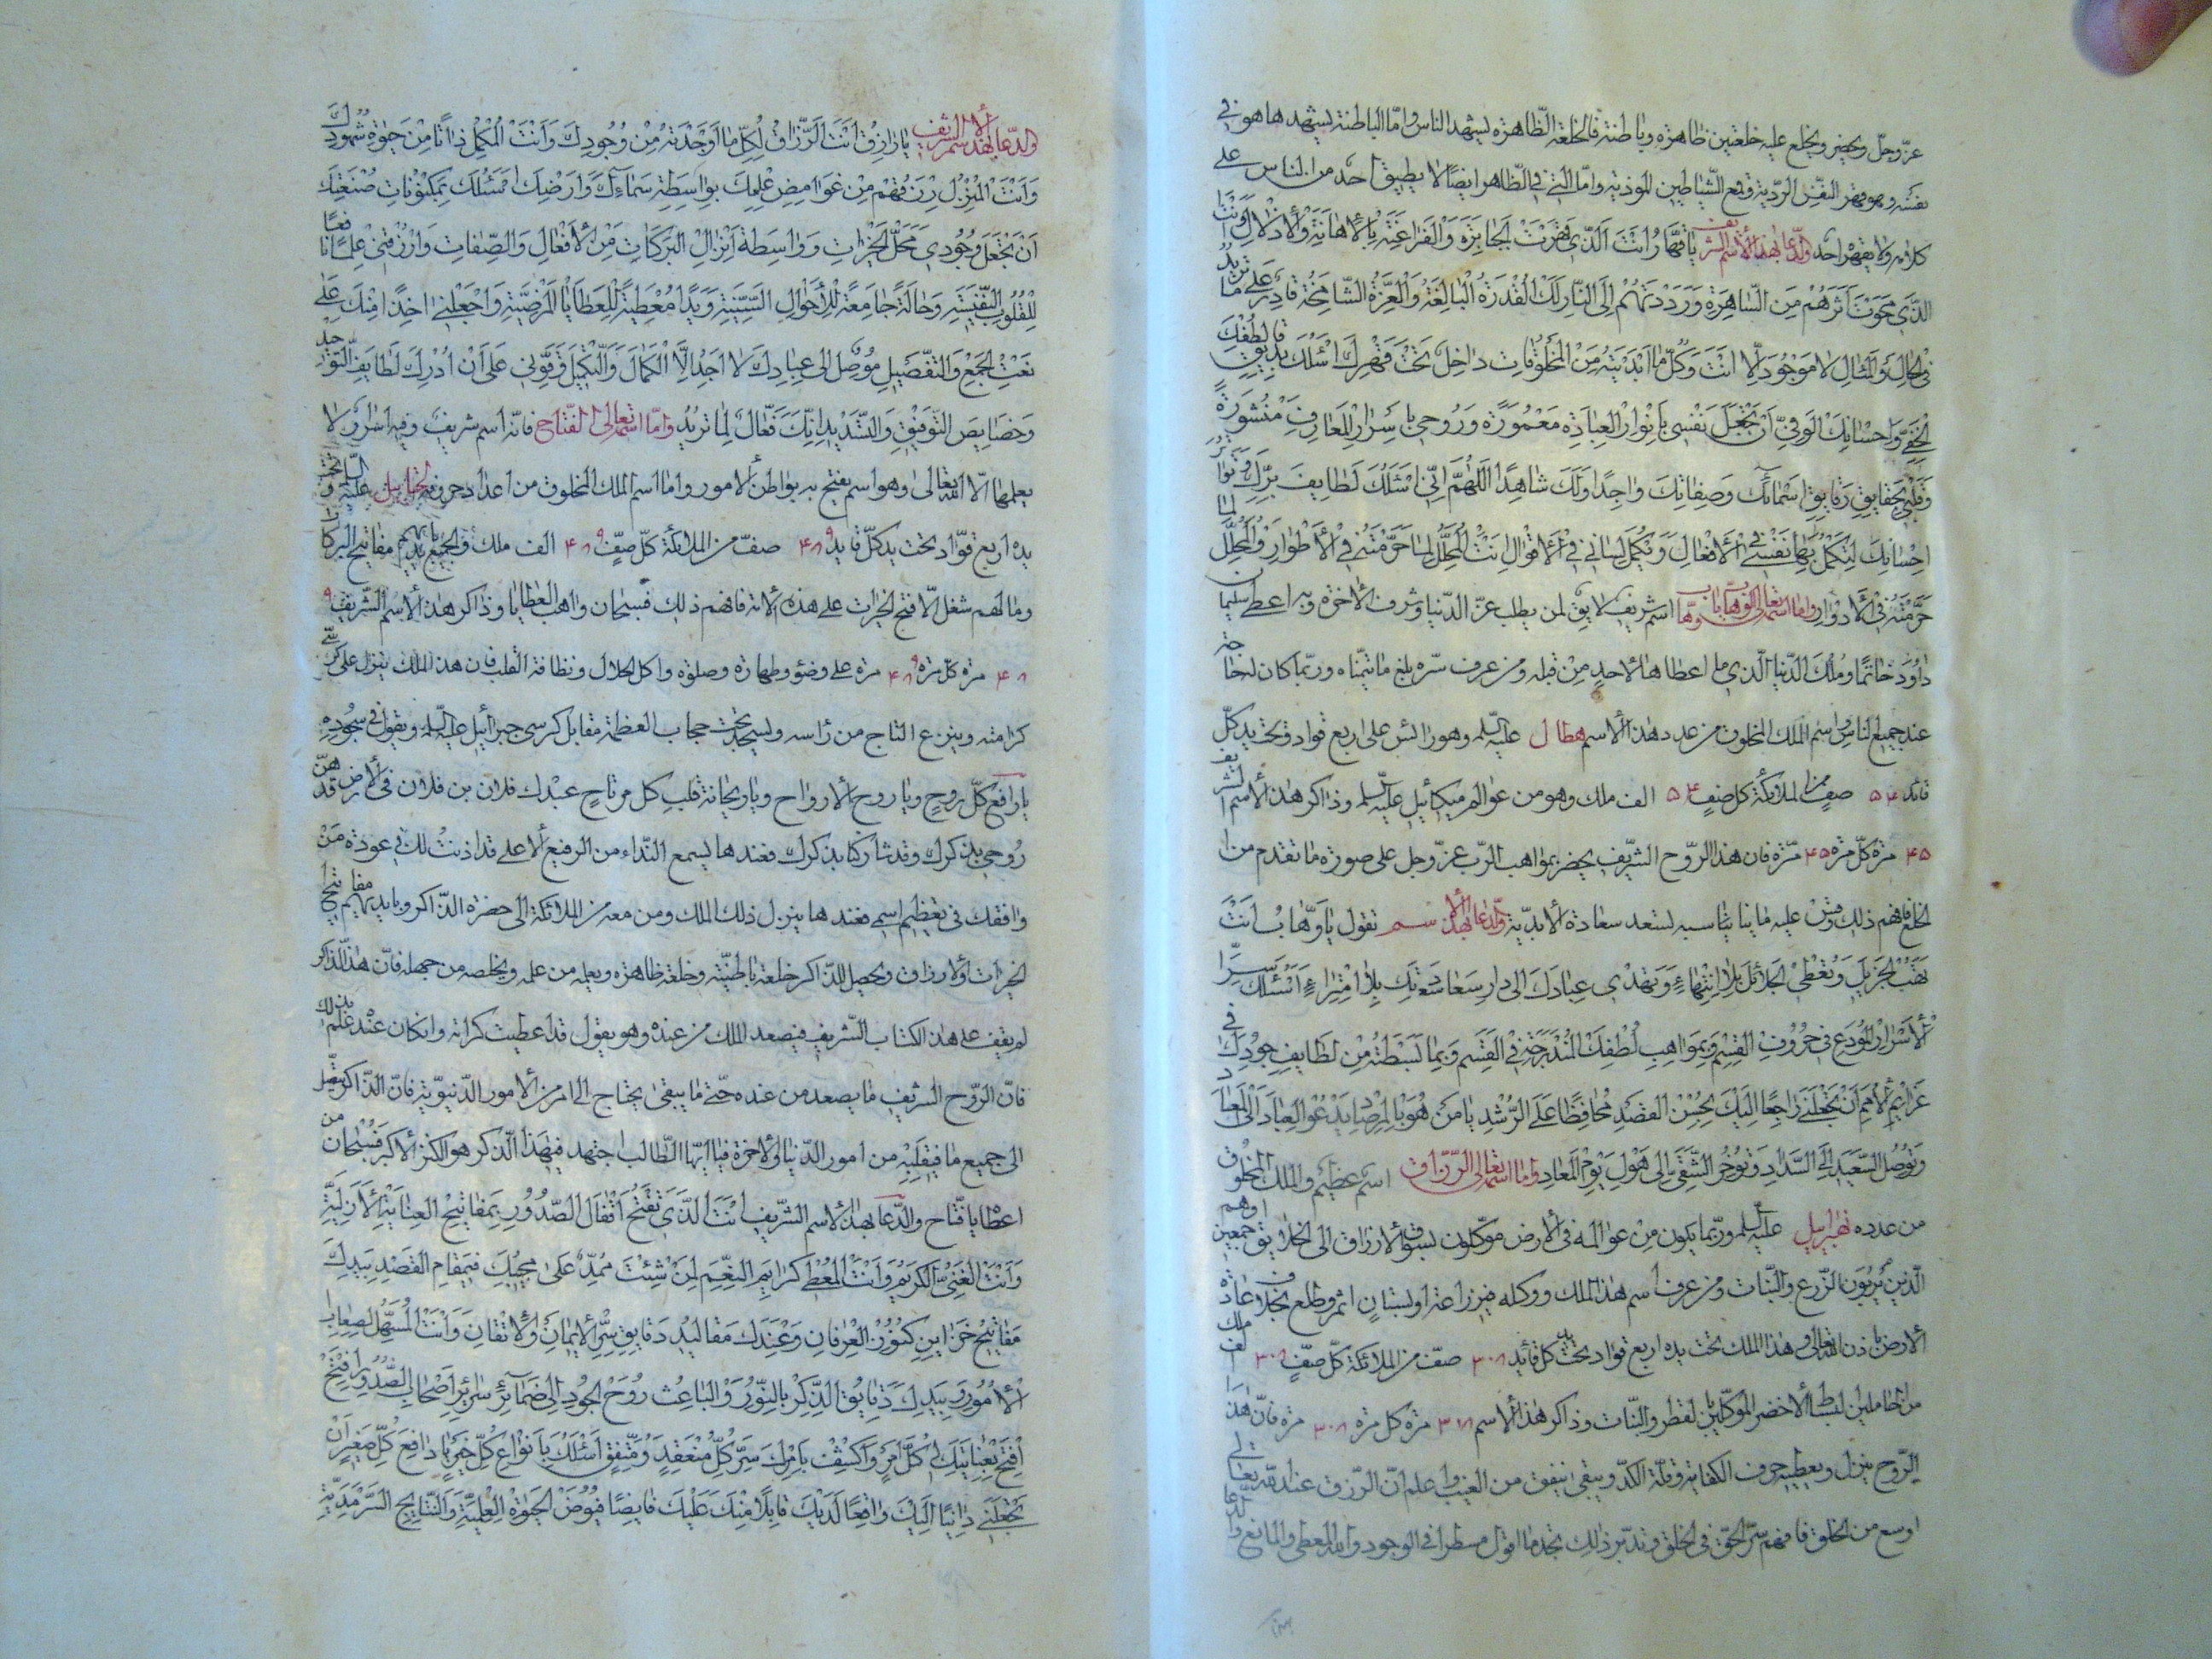 عزّ وجلّ ويحضر ويخلع عليه خلعتين ظاهرة وباطنة فالخلعة الظّاهرة يشهد الناس وامّا الباطنة يشهد ها هو في
نفسه وهو قهر النفس الرديّة وقمع الشّياطين الموذية وامّا التي في الظّاهر ايضًا لا يطيق احد من الناس على
كلامه ولا يقهره احد والدّعا بهذا الاسم الشريف يا قهّار انت الّذي قهرت الجبابرة والفراعنة بالاهانة والاذلال وانت
الّذي محوت اثرهم من السّاهرة ورددتهم الى النّار لك القدرة البالغة والعزّة الشّامخة قادر على ما تريد
في الحال والمثال لا موجود الّا انت وكلّ ما ابديته من المخلوقات داخل تحت قهرك اسئلك بدقايق لطفك
الخفيّ واحسانك الوفيّ ان تجعل نفسي بانوار العبادة معمورة وروحي باسرار المعارف منشورة
وقلبي بحقايق رقايق اسمائك وصفاتك واجدا ولك شاهدًا اللهمّ انّي اسئلك لطايف برّك ونوادر
احسانك ليكمل بها نفسي في الافعال ويكمل لساني في الاقوال انت المحلّل لما حرّمته في الاطوار والمحلّل لما
حرّمته في الادوار وامّا اسمه تعالى الوهّاب اسم شريف لايق لمن يطلب عزّ الدّنيا وشرف الاخرة وبه اعطى سليمان
داود خاتمًا وملك الدّنيا الّذي ما اعطاها لاحد من قبله ومن عرف سرّه بلغ ما يتمنّاه وربّما كان له
عند جميع الناس واسم الملك المخلوق من عدد هذا الاسم هطال عليه السّلم وهو رائس على اربع قواد وتحت يد كلّ
قائد ۵۴ صفّ من الملائكة كل صفّ ۵۴ الف ملك وهو من عوالم ميكائيل عليه السّلم وذاكر هذا الاسم الشريف
۴۵ مرّة كلّ مرّة ۴۵ مرّة فان هذا الرّوح الشّريف يحضر بمواهب الرّب عزّ وجل على صورة ما تقدم من
الخلع فافهم ذلك وقس عليه ما يناسبه لسعد سعادة الابديّة والدّعا بهذا الاسم تقول يا وهّاب انت
تهب الجزيل وتعطي الجلائل بلا انتهاء وتهدي عبادك الى دار سعادتك بلا امتراء اسئلك بسرّ
الاسرار المودع في حروف القسم وبمواهب لطفك المندرجة في القسم وبما بسطته من لطايف جودك في
غرايم الامم ان تجعلني راجعا اليك بحسن القصد محافظا على الرّشد يا من هو بالمرصاد يدعو العباد الى المعاد
وتوصل السّعيد الى السّداد وتؤخّر الشّقيّ الى هول يوم المعاد وامّا اسمه تعالى الرّزّاق اسم عظيم والملك المخلوق
من عدده عليه السّلم وربّما يكون من عوالمه في الارض موكّلون بسوق الارزاق الى الخلايق اجمعين وهم
الّذين يربّون الزّرع والنّبات ومن عرف اسم هذا الملك ووكله في زراعة او بستان اثمر وطلع بخلاف عادة
الارض باذن الله تعالى وهذا الملك تحت يده اربع قواد تحت يد كل قائد ۳۰۸ صفّ من الملائكة كلّ صفّ ۳۰۸ الف ملك
من حاملين لبساط الاخضر الموكّلين بالقطر والنّبات وذاكر هذا الاسم ۳۰۸ مرّة كل مرّة ۳۰۸ مرّة فانّ هذا
الرّوح ينزل ويعطيه حرف الكفاية وقلّة الكدّ ويبقى ينفق من الغيب واعلم انّ الرّزق عند الله تعالى
اوسع من الخلق فافهم سرّ الحقّ في الخلق وتدبّر ذلك تجد ما اقول مسطرا في الوجود والله المعطي والمانع والدّعا
والدّعا بهذا الاسم الشّريف يا رازق انت الرّزّاق لكلّ ما اوجدته من وجودك وانت المكمل ذاتا من حيوة شهودك
وانت المنزل رزقهم من غوامض علمك بواسطة سمائك وارضك اسئلك بمكنونات صنعتك
ان تجعل وجودي محلّ الخيرات وواسطة انزال البركات من الافعال والصّفات وارزقني علمًا نافعًا
للقلوب النّفيسة وحالة جامعة للاحوال السّنيّة ويدًا معطية للعطايا المرضيّة واجعلني اخذا منك على
نعت الجمع والتّفصيل موصل الى عبادك لا اجد الّا الكمال والتّكميل وقوّني على ان ادرك لطايف التّوحيد
وخصايص التّوفيق والتّسديد انّك فعّال لما تريد وامّا اسمه تعالى الفتّاح فانّه اسم شريف وفيه اسرار لا
يعلمها الّا الله تعالى وهو اسم يفتح به بواطن الامور وامّا اسم الملك المخلوق من اعداد حروفه عليه السّلم وتحت
يده اربع قوّاد تحت يد كلّ قايد ۴۸۹ صفّ من الملائكة كلّ صفّ ۴۸۹ الف ملك والجميع بايديهم مفاتيح البركات
وما لهم شغل الّا فتح الخيرات على هذه الامّة فافهم ذلك فسبحان واهب العطايا وذاكر هذا الاسم الشّريف
۴۸۹ مرّة كلّ مرّة ۴۸۹ مرّة على وضوء وطهارة وصلوة واكل الحلال ونظافة القلب فان هذا الملك ينزل على كرسيّ
كرامته وينزع التاج من راسه ويسجد تحت حجاب العظمة مقابل كرسي جبرائيل عليه السّلم ويقول في سجوده
يا رافع كلّ روح ويا روح الارواح ويا ريحانة قلب كل مرتاح عبدك فلان بن فلان في الارض قد
روحي بذكرك وقد شاركنا بذكرك فعندها يسمع النّداء من الرفيع الاعلى قد اذنت لك في عودة من
وافقك في تعظيم اسمي فعندها ينزل ذلك الملك ومن معه من الملائكة الى حضرة الذّاكر وبايديهم مفاتيح
الخيرات والارزاق ويحصل للذّاكر خلعة باطنيّة وخلعة ظاهرة ويعلّمه من علمه ويخلصه من جهله فانّ هذا الذّاكر
لم يقف على هذا الكتاب الشّريف فيصعد الملك من عنده وهو يقول قد اعطيت كرامة وان كان عنده علم بذلك
فانّ الرّوح الشّريف ما يصعد من عنده حتّى ما يبقى يحتاج الى امر من الامور الدّنيويّة فانّ الذّاكر يصل
الى جميع ما في قلبه من امور الدّنيا والاخرة فيا ايّها الطّالب اجتهد فهذا الذّكر هو الكنز الاكبر فسبحان من
اعطا يا فتّاح والدّعا بهذا الاسم الشريف انت الّذي تفتح اقفال الصّدور بمفاتيح العناية الازليّة
وانت الغنيّ الكريم وانت المعطي كرايم النّعم لمن شئت ممدّ على محبّيك في مقام القصد بيدك
مفاتيح خزاين كنوز العرفان وعندك مقاليد دقايق سرّ الايمان والاتقان وانت المسهّل لصعاب
الامور وبيدك دقايق الذّكر بالنّور والباعث روح الجود الى ضمائر سرائر اصحاب الصّدور افتح
افتح بعنايتك لي كلّ امر واكشف بامرك سرّ كلّ منعقد ومتّفق اسئلك بانواع كلّ خير يا دافع كلّ ضير ان
تجعلني دانيا اليك واقعا لديك قابلا منك عليك فايضا فيوض الحيوة العليّة والنّتايج السّرمديّة